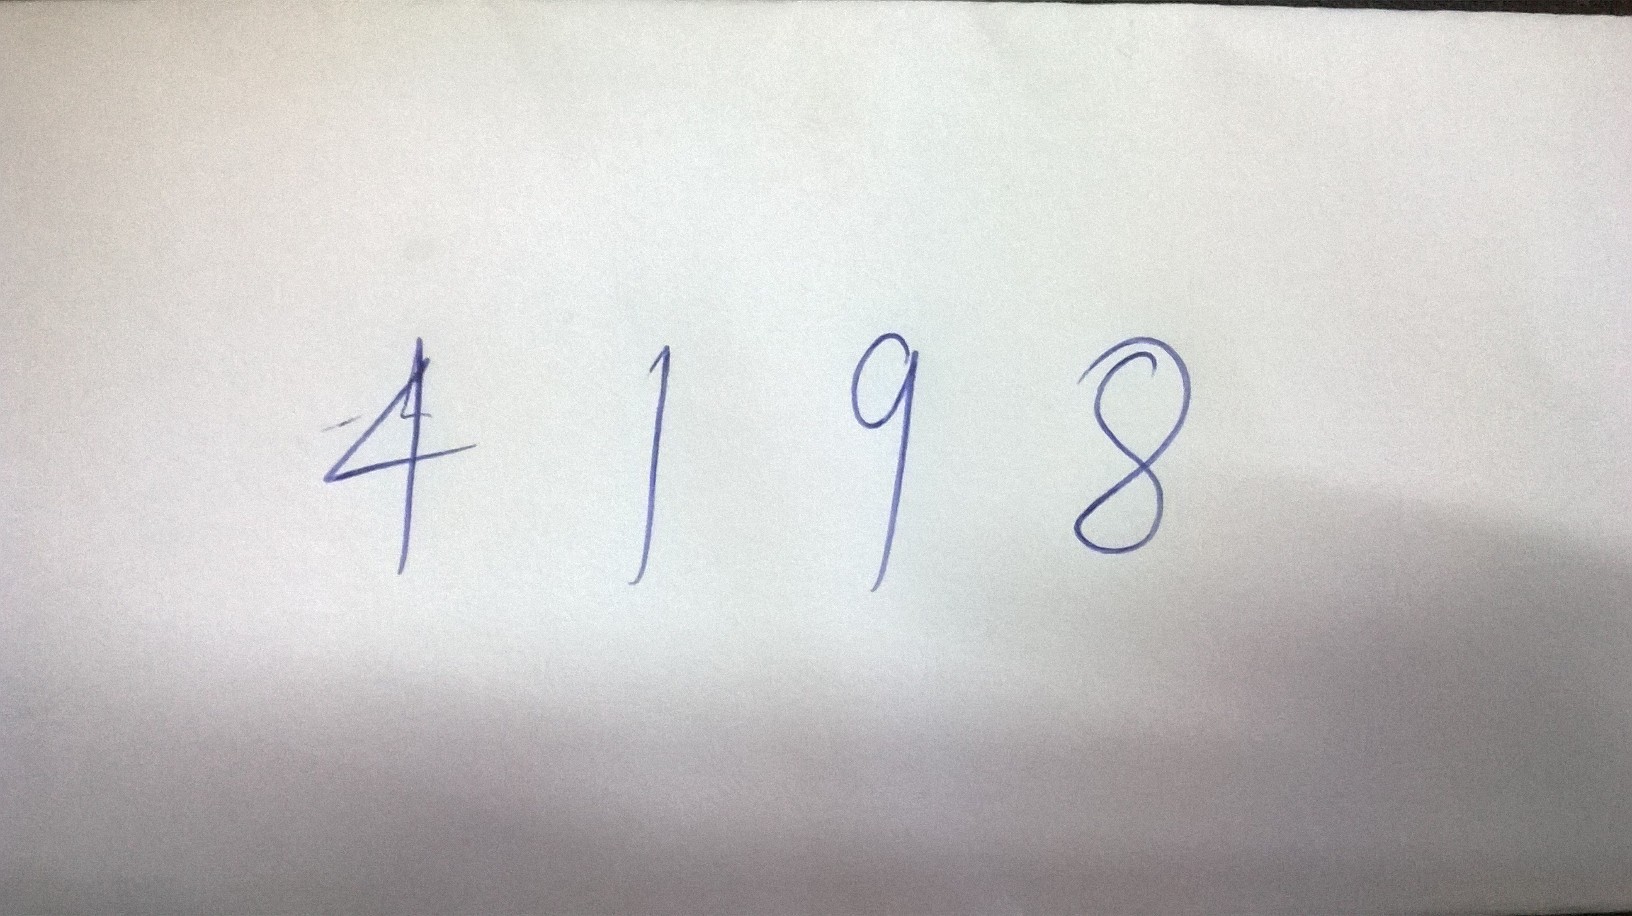 4 1 9 8